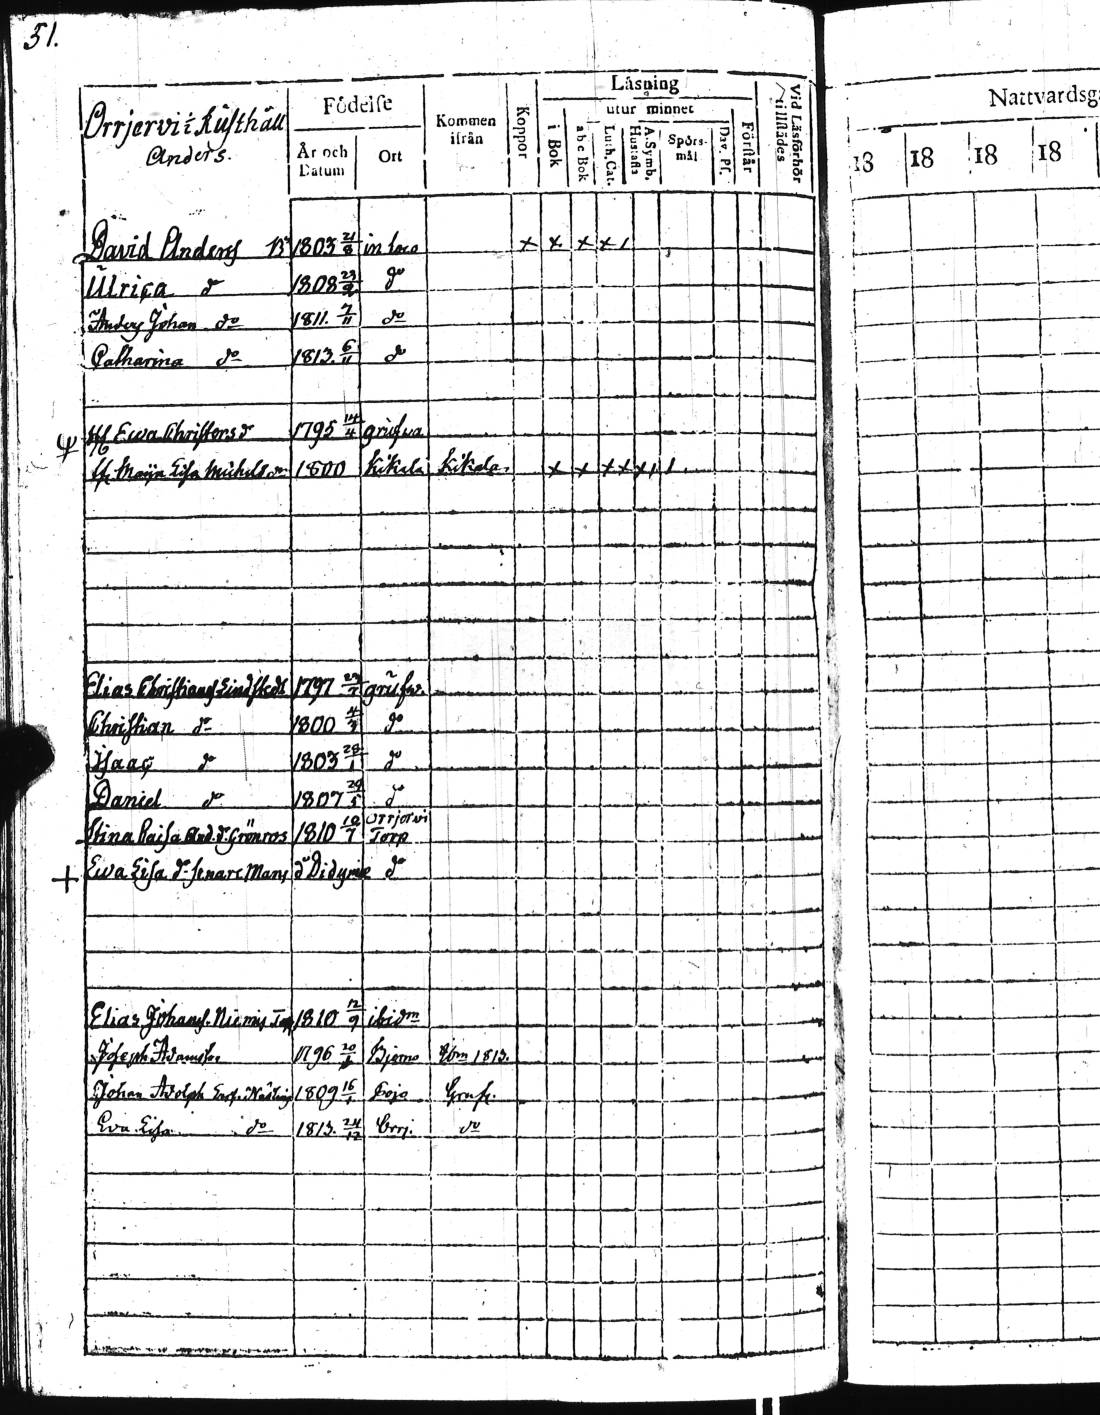 51.
Orrjervi Rusthåll
Anders.
Födelse
År och Datum
Ort
Kommen ifrån
Koppor
Läsning
utur minnet
i Bok
abc Bok
Luth. Cat.
A. Symb. Hustafl.
Spörs-mål
Dav. Ps.
Förstår
Vid Läsförhör tillstädes
Nattvardsg
18 18 18 18
David Anders 1803 21/8 in loco x x x x /
Ulrica d 1808 23/9 do
Anders Johan do 1811. 7/11 do
Catharina do 1813. 6/11 do
Ewa Christersd 1795 14/4 grufwa
Maija Lisa Michelsdr 1800 Kikala Kikala. x x x x x / /
Elias Christians Lindstedt 1797 29/7 grufw.
Christian do 1800 4/3 do
Isaac do 1803 28/1 do
Daniel do 1807 29/5 do
Stina Caisa And. d. Grönros 1810 10/7 Orrjervi Torp
+ Ewa Lisa d. senare Mans d Didymæ do
Elias Johans. Niemis Torp 1810 12/9 ibidm
Joseph Adamsson 1796 20/ Bjerno 1813.
Johan Adolph 1809 16/1 Pojo Grufv.
Eva Lisa do 1813. 24/12 Orrj. do